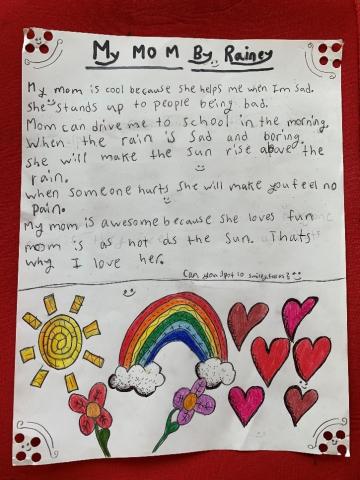 My MOM By Rainey
My mom is cool because she helps me when Im sad.
she stands up to people being bad.
Mom can drive me to school in the morning.
When the rain is sad and boring
she will make the sun rise above the
rain.
when someone hurts she will make you feel no
pain.
My mom is awesome because she loves fun
mom is as hot as the sun. Thats
why I love her.
Can you spot 10 smiley faces?